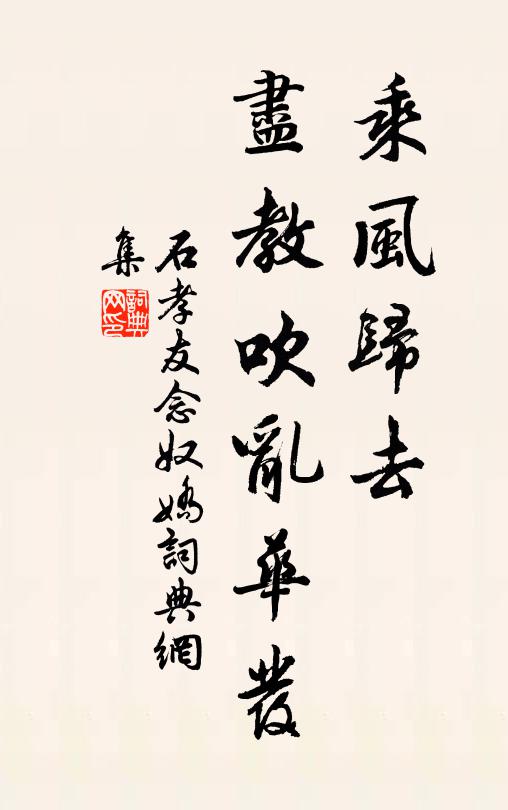 乘風歸去
盡教吹亂華發
石孝友念奴嬌詞典網
集
詞典网印